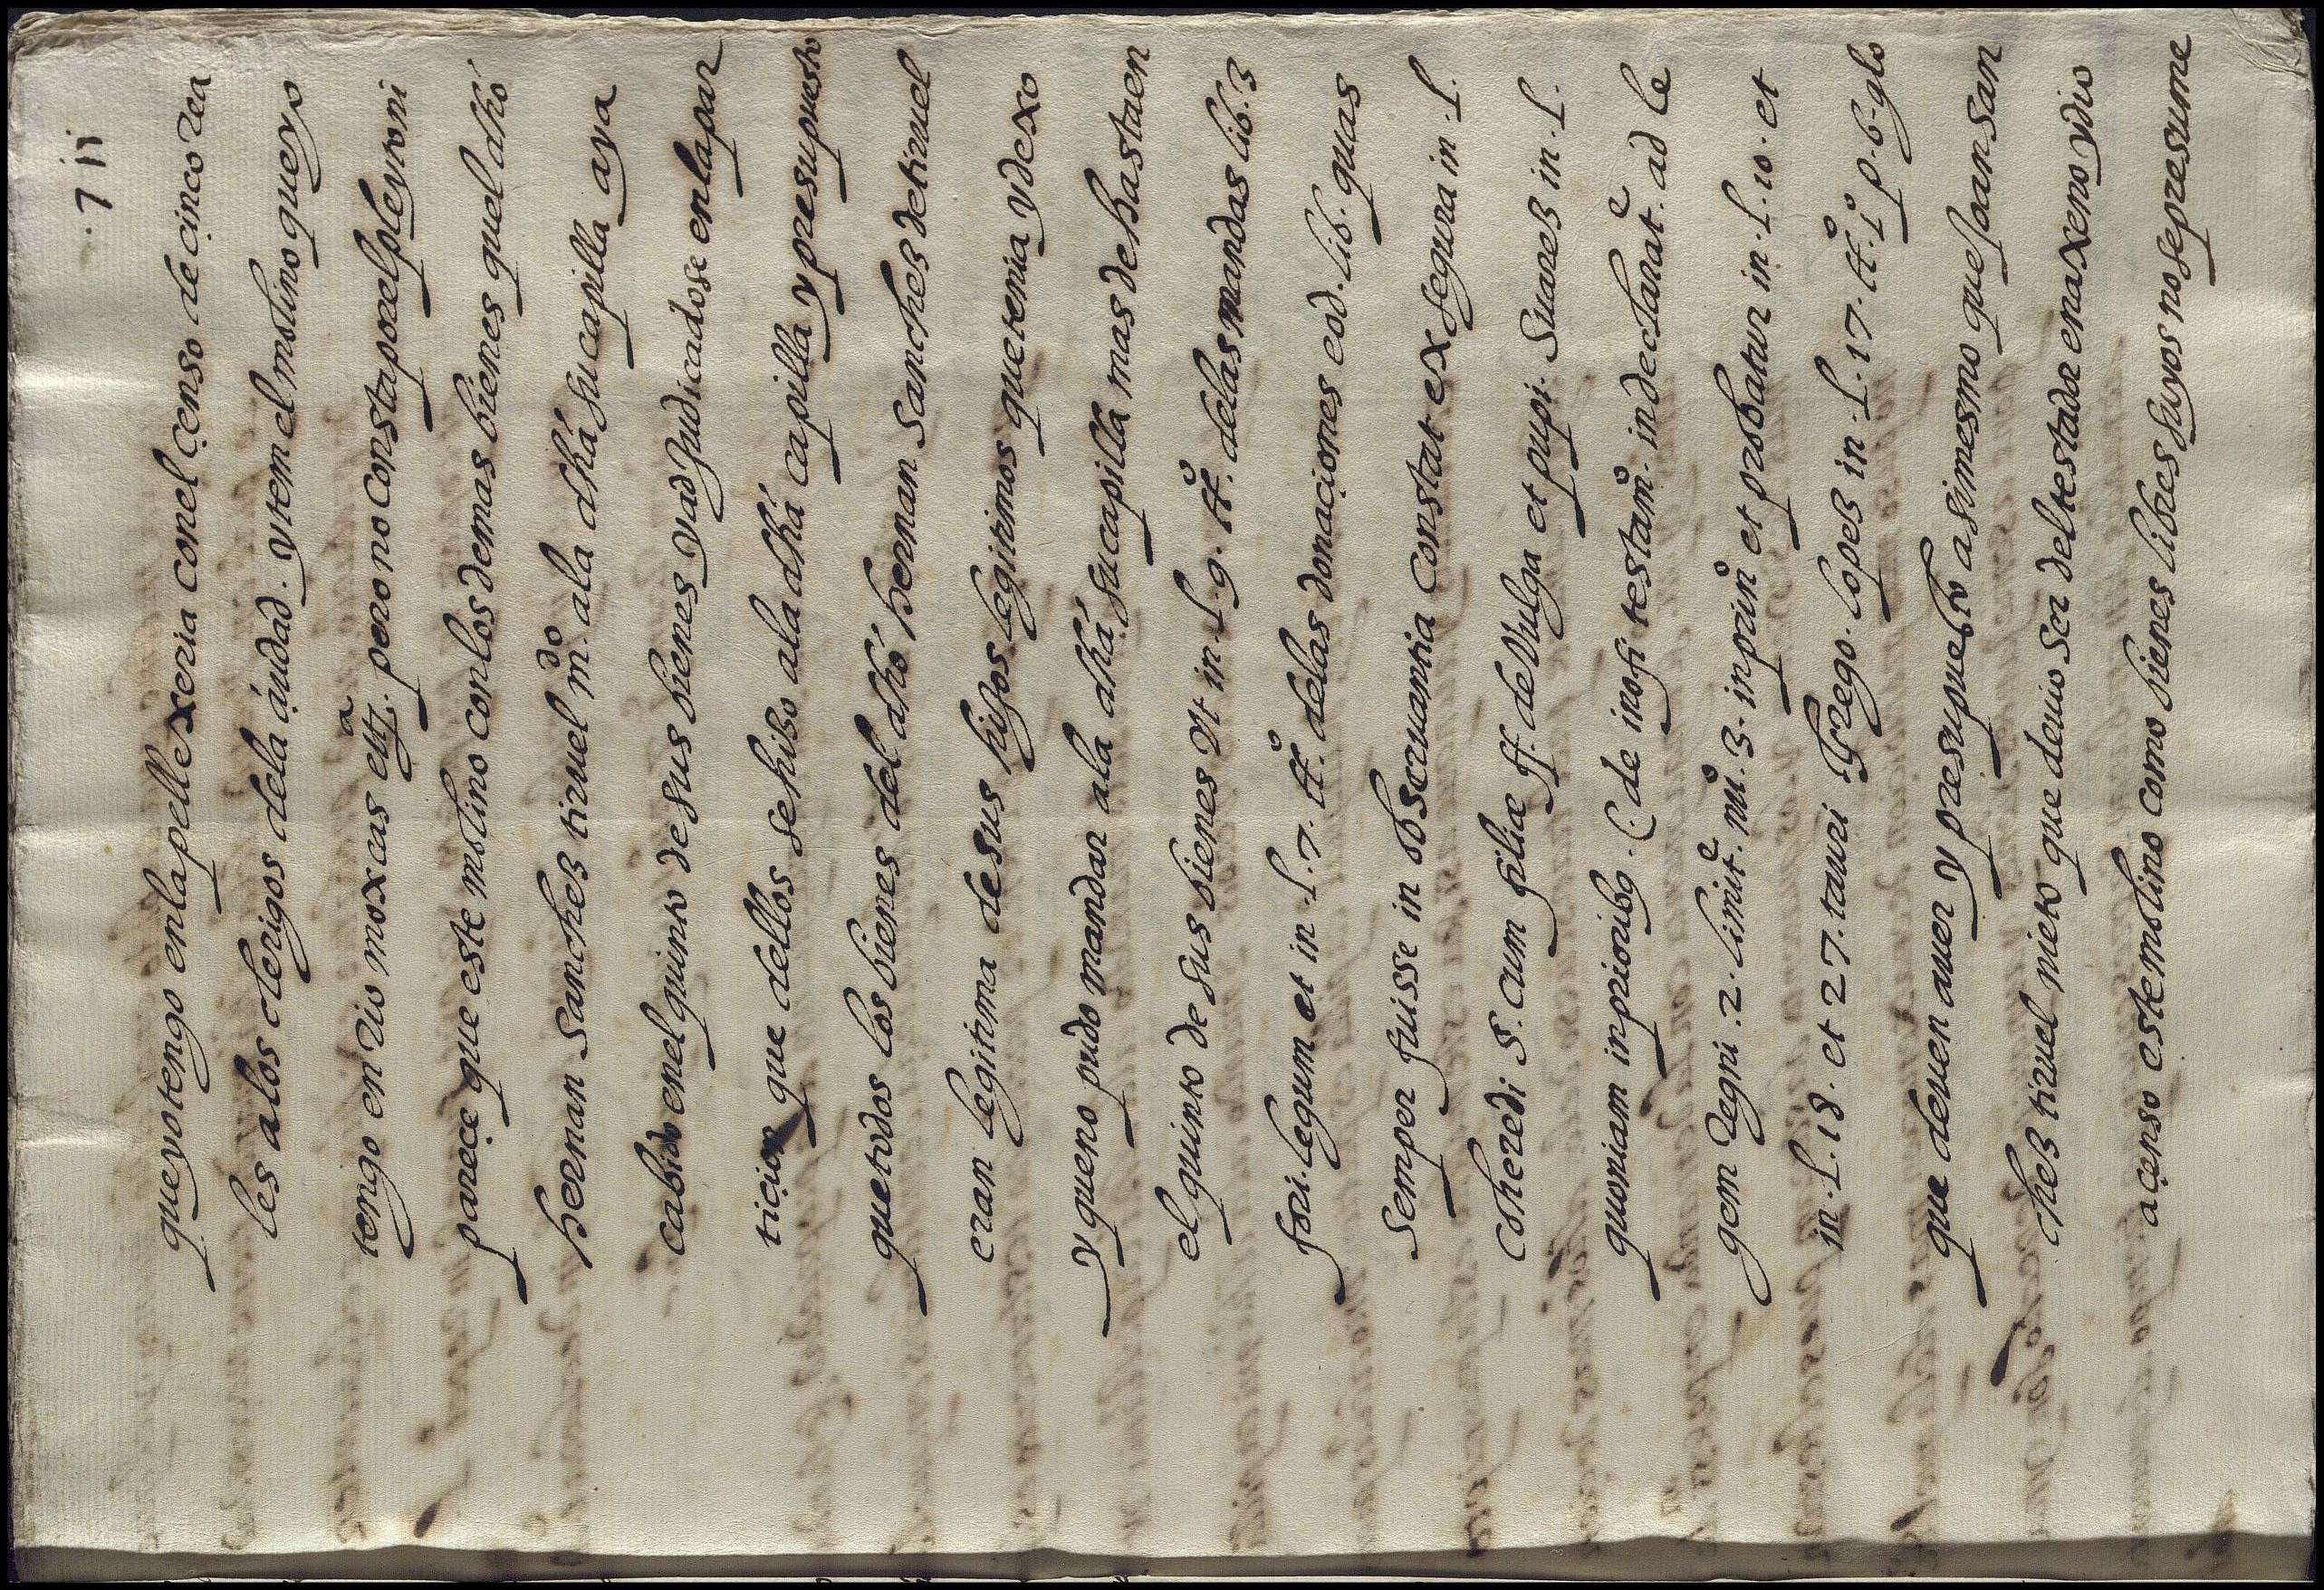 .7 ii
que yo tengo en la pellexeria con el çenso de çinco rea
les a los clerigos dela çiudad. yten el molino que yo
tengo en rio moxcas ettª. pero no consta por el pleyto ni
pareçe que este molino con los demas bienes quel dho
hernan sanchez tiruel mdo. ala dha su capilla aya
cabido en el quinto de sus bienes y adjudicadose en la par
tiçion que dellos se hizo ala dha capilla y presupuesto
que todos los bienes del dho hernan sanchez de tiruel
eran legitima de sus hijos legitimos que tenia y dexo
y que no pudo mandar ala dha su capilla mas de hasta en
el quinto de sus bienes vt in. l. 9. tto. delas mandas lib. 3
fori. legum et in. l. 7. tto. delas donaçiones eod. lib. quas
semper fuisse in obseruantia constat ex segura in. l.
coheredi §. cum filiæ ff. de vulga et pupi. suarez in. l.
quoniam in prioribꝯ. C. de inofi testamo. in declarate. ad le
gem regni. 2. limite. nuo. 3. in prinº et probatur in. l. 10. et
in. l. 18. et 27. tauri Grego. lopez in. l. 17. tto. 1º p. 6. glo
que deuen auer y presupuesto asimesmo que juan san
chez tiruel nieto que deuio ser del testador enaxeno y dio
a çenso este molino como bienes libres suyos no se presume